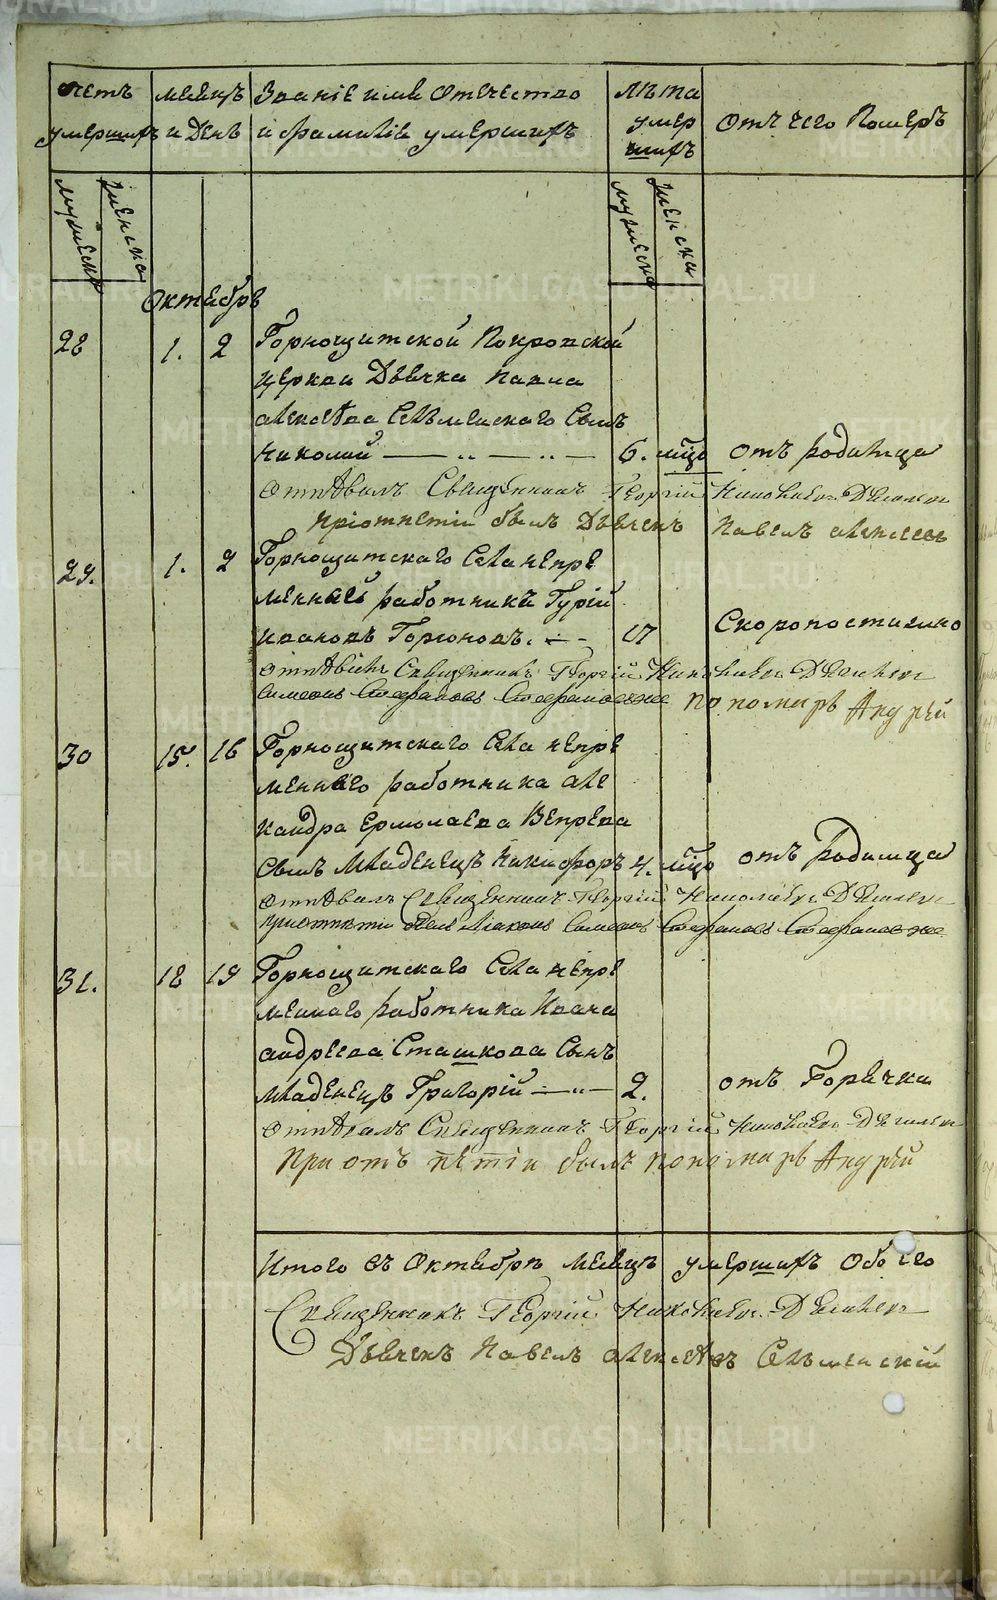 щетъ умершихъ
месяцъ и День
Званіе имя Отечество и фамилїе умершихъ
лѣта умершихъ
Отъ чего Померъ
мужеска
женска
мужеска
женска
Октябрь
28 1. 2 Горнощитской Покровской
церкви Дьячка Павла
Алексеева Селъменскаго Сынъ
Николай — „ — „ — 6. мцо отъ родимца
Отпѣвалъ Священникъ Георгій Николаевъ
Пріотпетіи былъ Дьячекъ Павелъ алексеевъ
29. 1. 2 Горнощитскаго Села непре
менный работникъ Гурій
Ивановъ Горюновъ. — 17 Скоропостижно
отпѣвалъ Священникъ Георгій Николаевъ
Симеонъ Стефановъ Стефановъ же пономарь Андрей
30 15. 16 Горнощитскаго Села непре
меннаго работника Але
ксандра Ермолаева Вепрева
Сынъ Младенецъ Никифоръ 4. мцо отъ родимца
Отпѣвалъ Священникъ Георгій Николаевъ
приотпетіи былъ Діаконъ Симеонъ Стефановъ Стефановъ же
31. 18 19 Горнощитскаго Села непре
менаго работника Ивана
андреева Сташкова Сынъ
Младенецъ Григорій — „ — 2. отъ Горячки
Отпѣвалъ Священникъ Георгій Николаевъ
При отъ петіи былъ пономарь Андрей
Итого въ Октябре месяцъ умершихъ Обоего
Священникъ Георгій Николаевъ
Дьячекъ Павелъ алексеевъ Селъменскій
METRIKI.GASO-URAL.RU